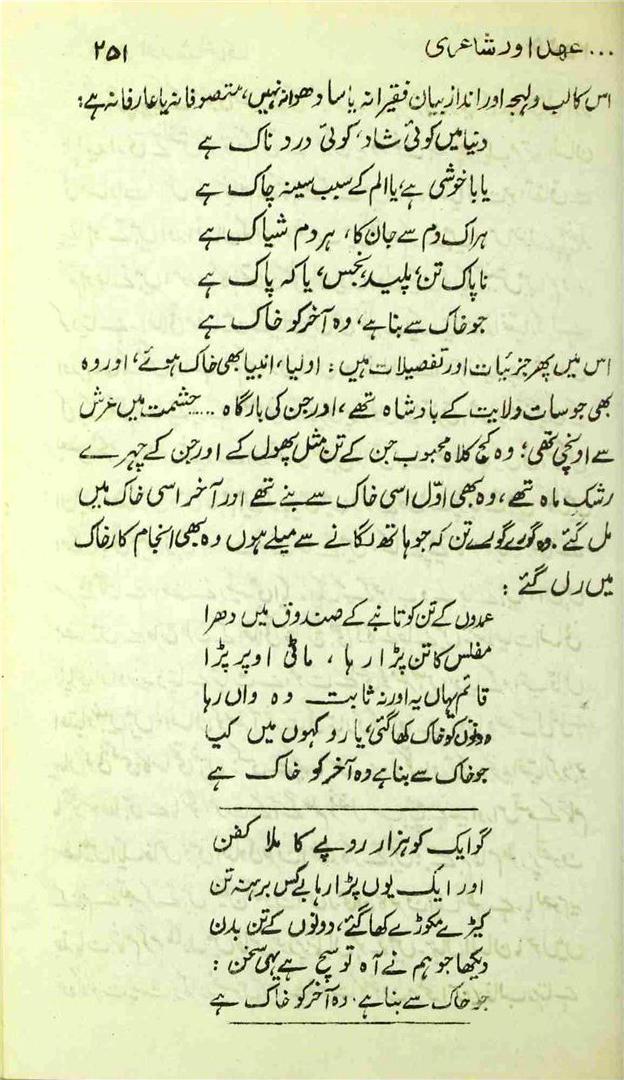 ... عہد اور شاعری ۲۵۱
اس کا لب و لہجہ اور اندازِ بیان فقیرانہ یا سادھوانہ نہیں، متصوفانہ یا عارفانہ ہے:
دنیا میں کوئی شاد، کوئی درد ناک ہے
یا با خوشی ہے، یا الم کے سبب سینہ چاک ہے
ہر اک دم سے جان کا، ہر دم شیاک ہے
ناپاک تن، پلید، نجس، یا کہ پاک ہے
جو خاک سے بنا ہے، وہ آخر کو خاک ہے
اس میں پھر جزئیات اور تفصیلات ہیں: اولیا، انبیا بھی خاک ہوئے، اور وہ
بھی جو سات ولایت کے بادشاہ تھے، اور جن کی بارگاہ ..... حشمت میں عرش
سے اونچی تھی؛ وہ کج کلاہ محبوب جن کے تن مثل پھول کے اور جن کے چہرے
رشکِ ماہ تھے، وہ بھی اوّل اسی خاک سے بنے تھے اور آخر اسی خاک میں
مل گئے. وہ گورے گورے تن کہ جو ہاتھ لگانے سے میلے ہوں وہ بھی انجام کار خاک
میں رل گئے:
عمدوں کے تن کو تانبے کے صندوق میں دھرا
مفلس کا تن پڑا رہا، ماٹی اوپر پڑا
قائم یہاں یہ اور نہ ثابت وہ واں رہا
دونوں کو خاک کھا گئی، یارو کہوں میں کیا
جو خاک سے بنا ہے وہ آخر کو خاک ہے
گو ایک کو ہزار روپے کا ملا کفن
اور ایک یوں پڑا رہا بے کس برہنہ تن
کیڑے مکوڑے کھا گئے، دونوں کے تن بدن
دیکھا جو ہم نے آہ تو سچ ہے یہی سخن:
جو خاک سے بنا ہے. وہ آخر کو خاک ہے